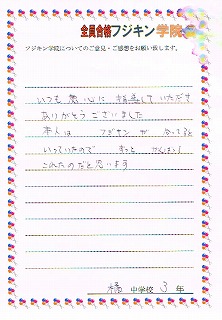 全員合格フジキン学院
フジキン学院についてのご意見・ご感想をお願い致します。
いつも熱心に指導して いただき
ありがとうございました
本人は フジキン が 合ってると
いっていたので ずっと がんばって
これたのだと思います
橘 中学校 3 年